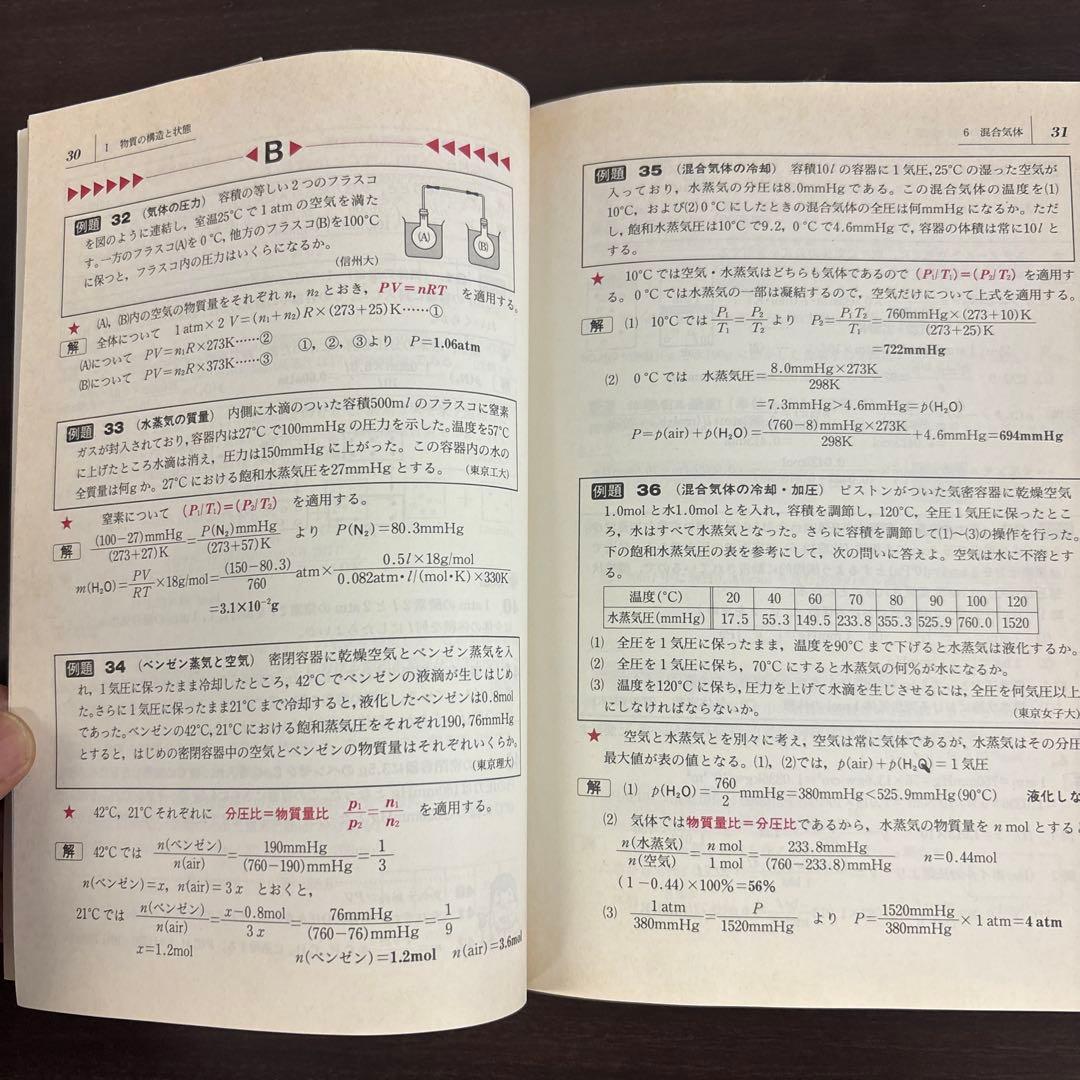 30 Ⅰ 物質の構造と状態
B
例題 32 (気体の圧力) 容積の等しい2つのフラスコ
を図のように連結し，室温25°Cで1atmの空気を満た
す。一方のフラスコ(A)を0°C，他方のフラスコ(B)を100°C
に保つと，フラスコ内の圧力はいくらになるか。
(信州大)
(A) (B)
★ (A)，(B)内の空気の物質量をそれぞれn₁，n₂とおき，PV=nRT を適用する。
解 全体について 1atm×2V=(n₁+n₂)R×(273+25)K……①
(A)について PV=n₁R×273K……② ①，②，③より P=1.06atm
(B)について PV=n₂R×373K……③
例題 33 (水蒸気の質量) 内側に水滴のついた容積500mlのフラスコに窒素
ガスが封入されており，容器内は27°Cで100mmHgの圧力を示した。温度を57°C
に上げたところ水滴は消え，圧力は150mmHgに上がった。この容器内の水の
全質量は何gか。27°Cにおける飽和水蒸気圧を27mmHgとする。 (東京工大)
★ 窒素について (P₁/T₁)=(P₂/T₂) を適用する。
解 (100-27)mmHg/(273+27)K=P(N₂)mmHg/(273+57)K より P(N₂)=80.3mmHg
m(H₂O)=PV/RT×18g/mol=(150-80.3)/760 atm×0.5l×18g/mol/0.082atm・l/(mol・K)×330K
=3.1×10⁻²g
例題 34 (ベンゼン蒸気と空気) 密閉容器に乾燥空気とベンゼン蒸気を入
れ，1気圧に保ったまま冷却したところ，42°Cでベンゼンの液滴が生じはじめ
た。さらに1気圧に保ったまま21°Cまで冷却すると，液化したベンゼンは0.8mol
であった。ベンゼンの42°C，21°Cにおける飽和蒸気圧をそれぞれ190，76mmHg
とすると，はじめの密閉容器中の空気とベンゼンの物質量はそれぞれいくらか。
(東京理大)
★ 42°C，21°Cそれぞれに 分圧比=物質量比 p₁/p₂=n₁/n₂ を適用する。
解 42°Cでは n(ベンゼン)/n(air)=190mmHg/(760-190)mmHg=1/3
n(ベンゼン)=x，n(air)=3x とおくと，
21°Cでは n(ベンゼン)/n(air)=x-0.8mol/3x=76mmHg/(760-76)mmHg=1/9
x=1.2mol n(ベンゼン)=1.2mol n(air)=3.6mol
6 混合気体 31
例題 35 (混合気体の冷却) 容積10lの容器に1気圧，25°Cの湿った空気が
入っており，水蒸気の分圧は8.0mmHgである。この混合気体の温度を(1)
10°C，および(2)0°Cにしたときの混合気体の全圧は何mmHgになるか。ただ
し，飽和水蒸気圧は10°Cで9.2，0°Cで4.6mmHgで，容器の体積は常に10lと
する。
★ 10°Cでは空気・水蒸気はどちらも気体であるので(P₁/T₁)=(P₂/T₂)を適用す
る。0°Cでは水蒸気の一部は凝結するので，空気だけについて上式を適用する。
解 (1) 10°Cでは P₁/T₁=P₂/T₂ より P₂=P₁T₂/T₁=760mmHg×(273+10)K/(273+25)K
=722mmHg
(2) 0°Cでは 水蒸気圧=8.0mmHg×273K/298K
=7.3mmHg>4.6mmHg=p(H₂O)
P=p(air)+p(H₂O)=(760-8)mmHg×273K/298K+4.6mmHg=694mmHg
例題 36 (混合気体の冷却・加圧) ピストンがついた気密容器に乾燥空気
1.0molと水1.0molとを入れ，容積を調節し，120°C，全圧1気圧で保ったとこ
ろ，水はすべて水蒸気となった。さらに容積を調節して(1)〜(3)の操作を行った。
下の飽和水蒸気圧の表を参考にして，次の問いに答えよ。空気は水に不溶とす
る。
温度(°C) 20 40 60 70 80 90 100 120
水蒸気圧(mmHg) 17.5 55.3 149.5 233.8 355.3 525.9 760.0 1520
(1) 全圧を1気圧に保ったまま，温度を90°Cまで下げると水蒸気は液化するか。
(2) 全圧を1気圧に保ち，70°Cにすると水蒸気の何%が水になるか。
(3) 温度を120°Cに保ち，圧力を上げて水滴を生じさせるには，全圧を何気圧以上
にしなければならないか。 (東京女子大)
★ 空気と水蒸気とを別々に考え，空気は常に気体であるが，水蒸気はその分圧
最大値が表の値となる。(1)，(2)では，p(air)+p(H₂O)=1気圧
解 (1) p(H₂O)=760/2 mmHg=380mmHg<525.9mmHg(90°C) 液化しな
(2) 気体では物質量比=分圧比であるから，水蒸気の物質量をn molとする
n(水蒸気)/n(空気)=n mol/1 mol=233.8mmHg/(760-233.8)mmHg n=0.44mol
(1-0.44)×100%=56%
(3) 1atm/380mmHg=P/1520mmHg より P=1520mmHg/380mmHg×1atm=4atm